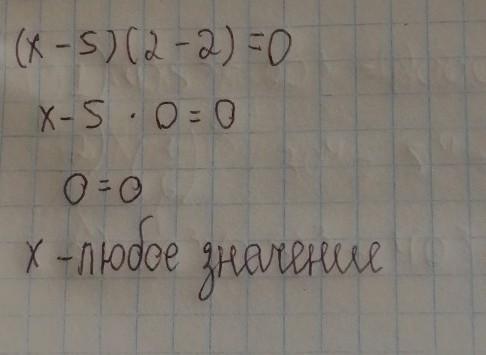 (x - 5)(2 - 2) = 0
x - 5 · 0 = 0
0 = 0
x - любое значение